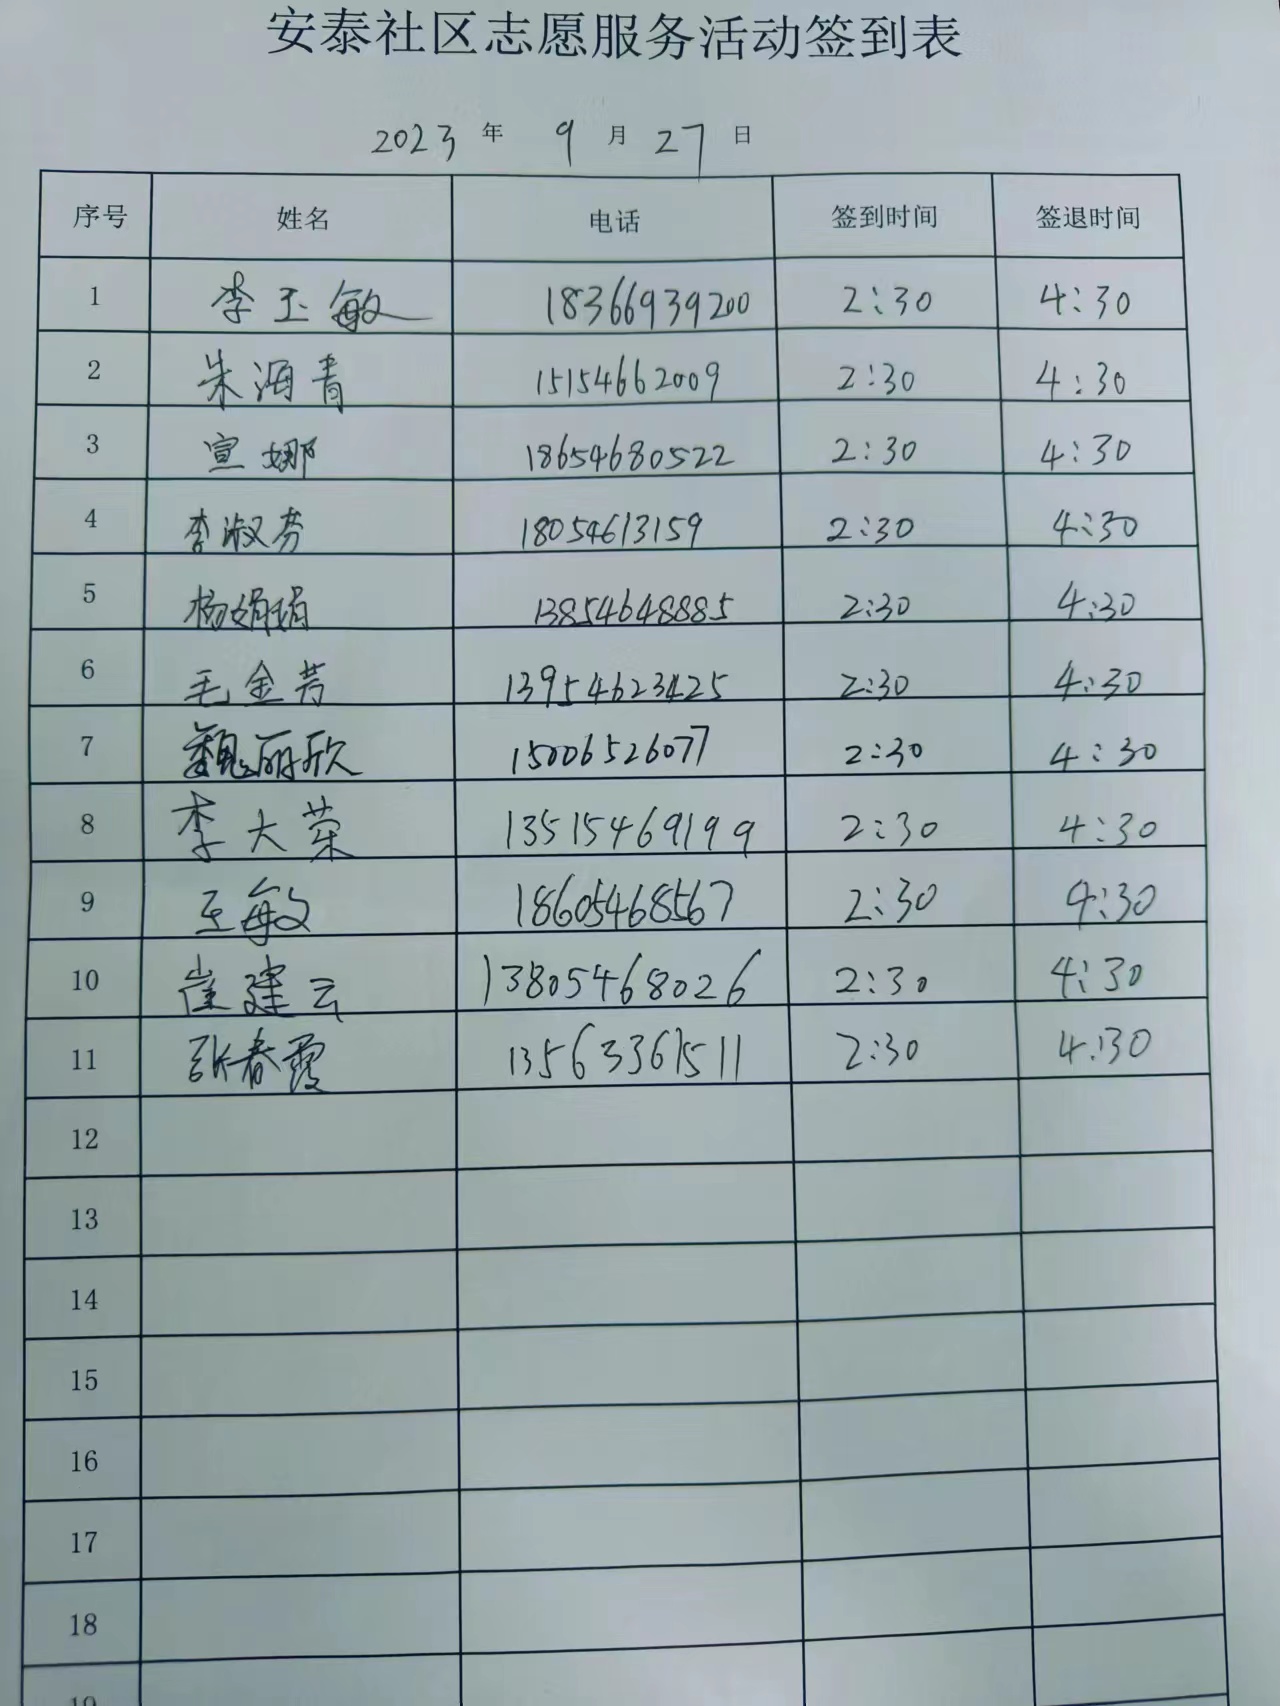 安泰社区志愿服务活动签到表
2023 年 9 月 27 日
序号 姓名 电话 签到时间 签退时间
1 李玉敏 18366939200 2:30 4:30
2 朱海青 15154662009 2:30 4:30
3 宣娜 18654680522 2:30 4:30
4 李淑芳 18054613159 2:30 4:30
5 杨娟娟 13854648885 2:30 4:30
6 毛金芳 13954623425 2:30 4:30
7 魏丽欣 15006526077 2:30 4:30
8 李大荣 13515469199 2:30 4:30
9 王敏 18605468567 2:30 4:30
10 崔建云 13805468026 2:30 4:30
11 张春霞 13563361511 2:30 4:30
12
13
14
15
16
17
18
19